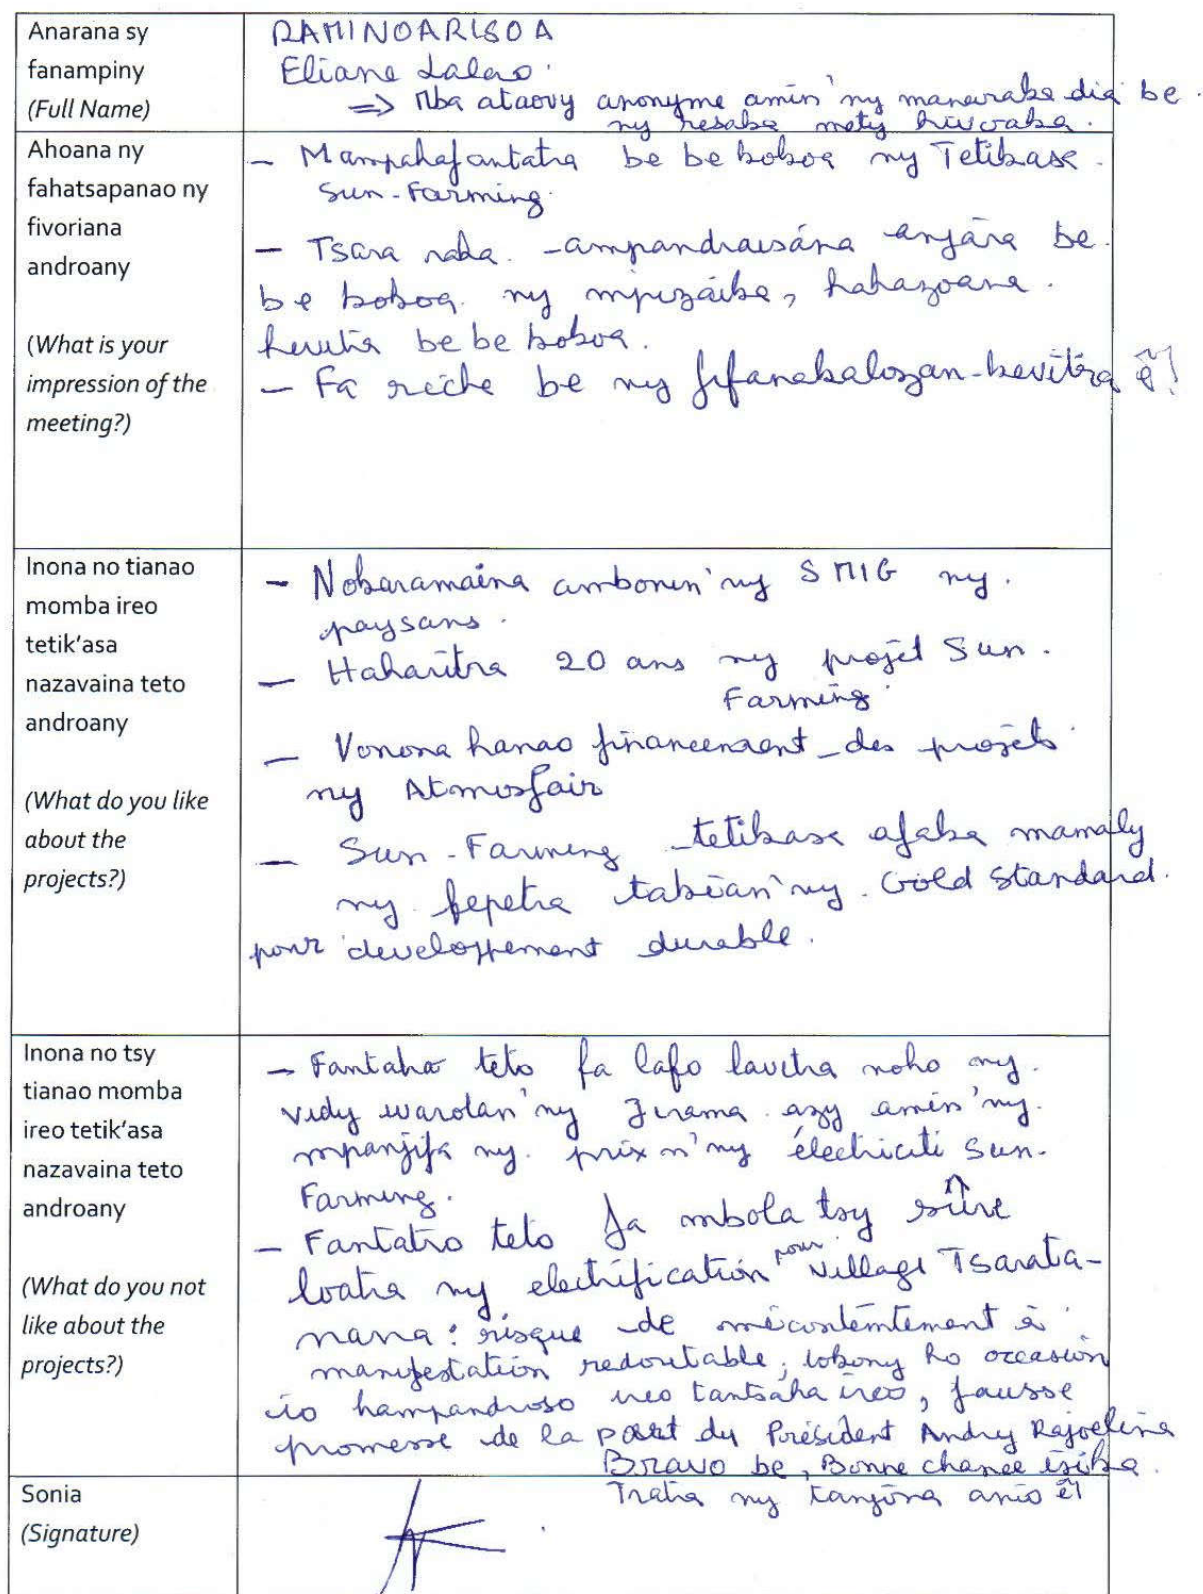 Anarana sy
fanampiny
(Full Name)
RAMINOARISOA
Eliane Lalao.
=> Mba ataovy anonyme amin'ny manaraka dia be
ny resaka mety hivoaka.
Ahoana ny
fahatsapanao ny
fivoriana
androany
(What is your
impression of the
meeting?)
- Mampahafantatra be be kokoa ny Tetikasa
Sun-Farming.
- Tsara raha -ampandraisana anjara be
be kokoa ny mpizaika, hahazoana
hevitra be be kokoa.
- Fa riche be ny fifanakalozan-kevitra ê!
Inona no tianao
momba ireo
tetik'asa
nazavaina teto
androany
(What do you like
about the
projects?)
- Nokaramaina ambonin'ny SMIG ny
paysans.
- Haharitra 20 ans ny projet Sun
Farming
- Vonona hanao financement des projets
ny Atmosfair
- Sun-Farming tetikasa afaka mamaly
ny fepetra takian'ny Gold Standard
pour developpement durable.
Inona no tsy
tianao momba
ireo tetik'asa
nazavaina teto
androany
(What do you not
like about the
projects?)
- Fantatro teto fa lafo lavitra noho ny
vidy varotan'ny Jirama azy amin'ny
mpanjifa ny prix n'ny électricité Sun-
Farming.
- Fantatro teto fa mbola tsy sûre
loatra ny electrification pour village Tsarata-
nana: risque de mécontentement à
manifestation redoutable, lokony ho occasion
io hampandroso ireo tantsaha ireo, fausse
promesse de la part du Président Andry Rajoelina
Bravo be, Bonne chance isika.
Tratra ny tanjona anio ê!
Sonia
(Signature)